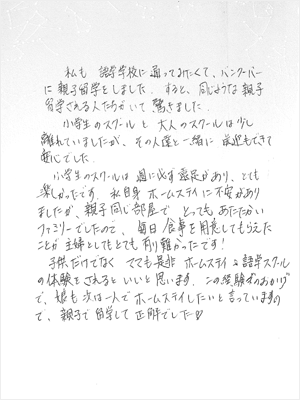 私も 語学学校に 通ってみたくて、バンクーバー
に 親子留学をしました。すると、同じような親子
留学される人たちがいて 驚きました。
小学生のスクールと 大人のスクールは少し
離れていましたが、その人達と一緒に 送迎もできて
安心でした。
小学生のスクールは 週に必ず遠足があり、とても
楽しかったです。私自身 ホームステイに不安があり
ましたが、親子同じ部屋で とってもあたたかい
ファミリーでしたので、毎日 食事を用意してもらえた
ことが 主婦としてもとても 有り難かったです！
子供だけでなく ママも是非 ホームステイ＆語学スクール
の体験をされると いいと思います。この経験のおかげ
で、娘も次は一人でホームステイしたいと言っていますの
で、親子で留学して 正解でした♡